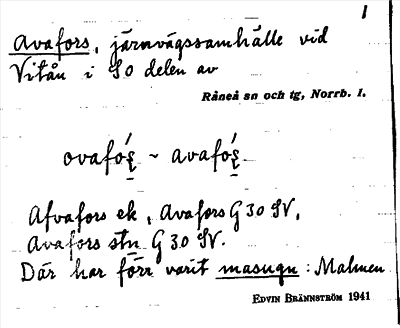 1
Avafors, järnvägssamhälle vid
Vitån i SO delen av
Råneå sn och tg, Norrb. l.
ovafó̱ș ~ avafó̱ș
Afvafors ek, Avafors G 30 SV,
Avafors stn G 30 SV.
Där har förr varit masugn: Malmen
EDVIN BRÄNNSTRÖM 1941